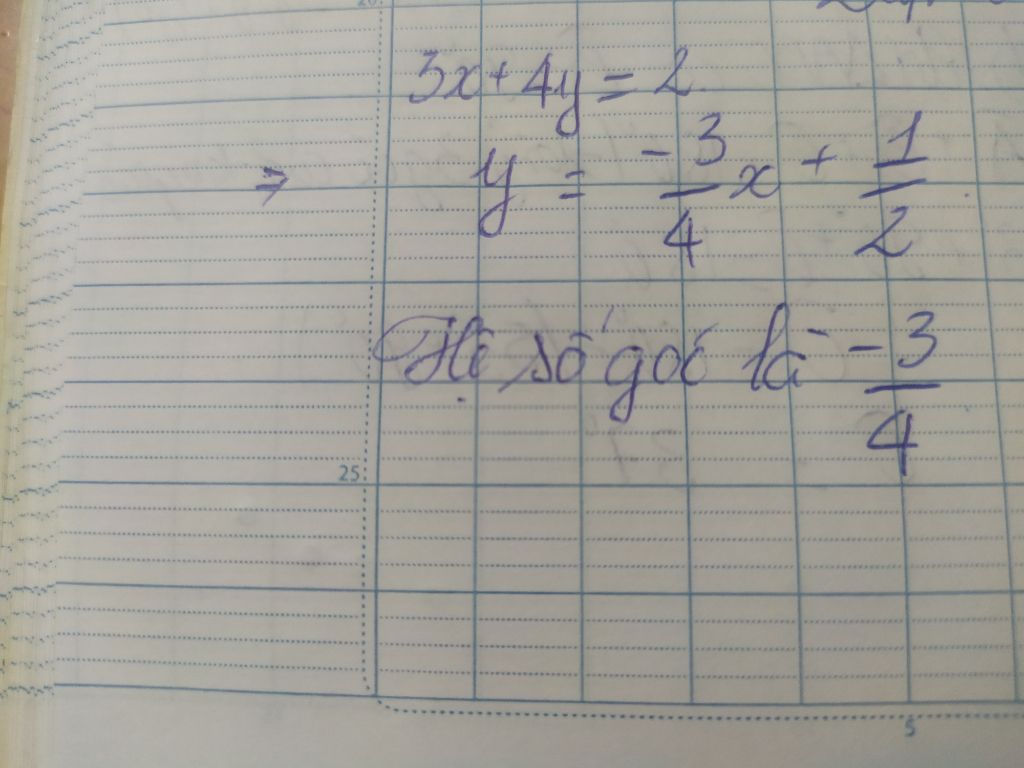 3x + 4y = 2
⇒ y = -3/4 x + 1/2
Hệ số góc là -3/4
25
5